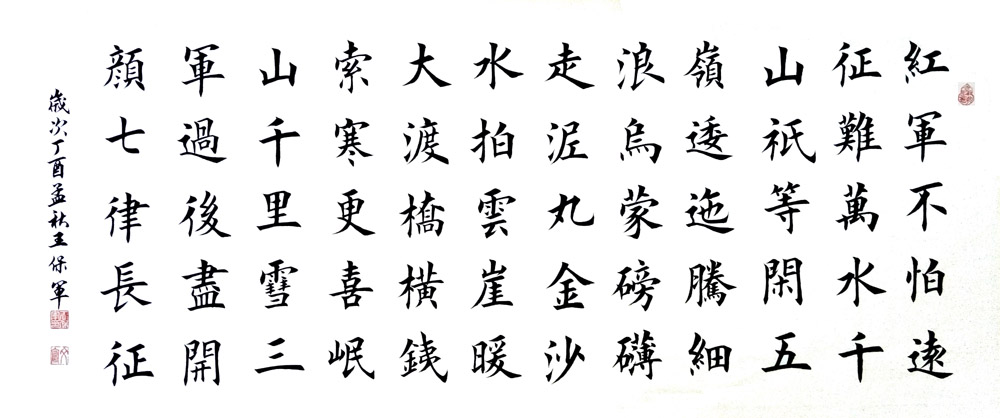 紅軍不怕遠
征難萬水千
山祇等閑五
嶺逶迤騰細
浪烏蒙磅礴
走泥丸金沙
水拍雲崖暖
大渡橋橫鐵
索寒更喜岷
山千里雪三
軍過後盡開
顔七律長征
歲次丁酉孟秋王保軍